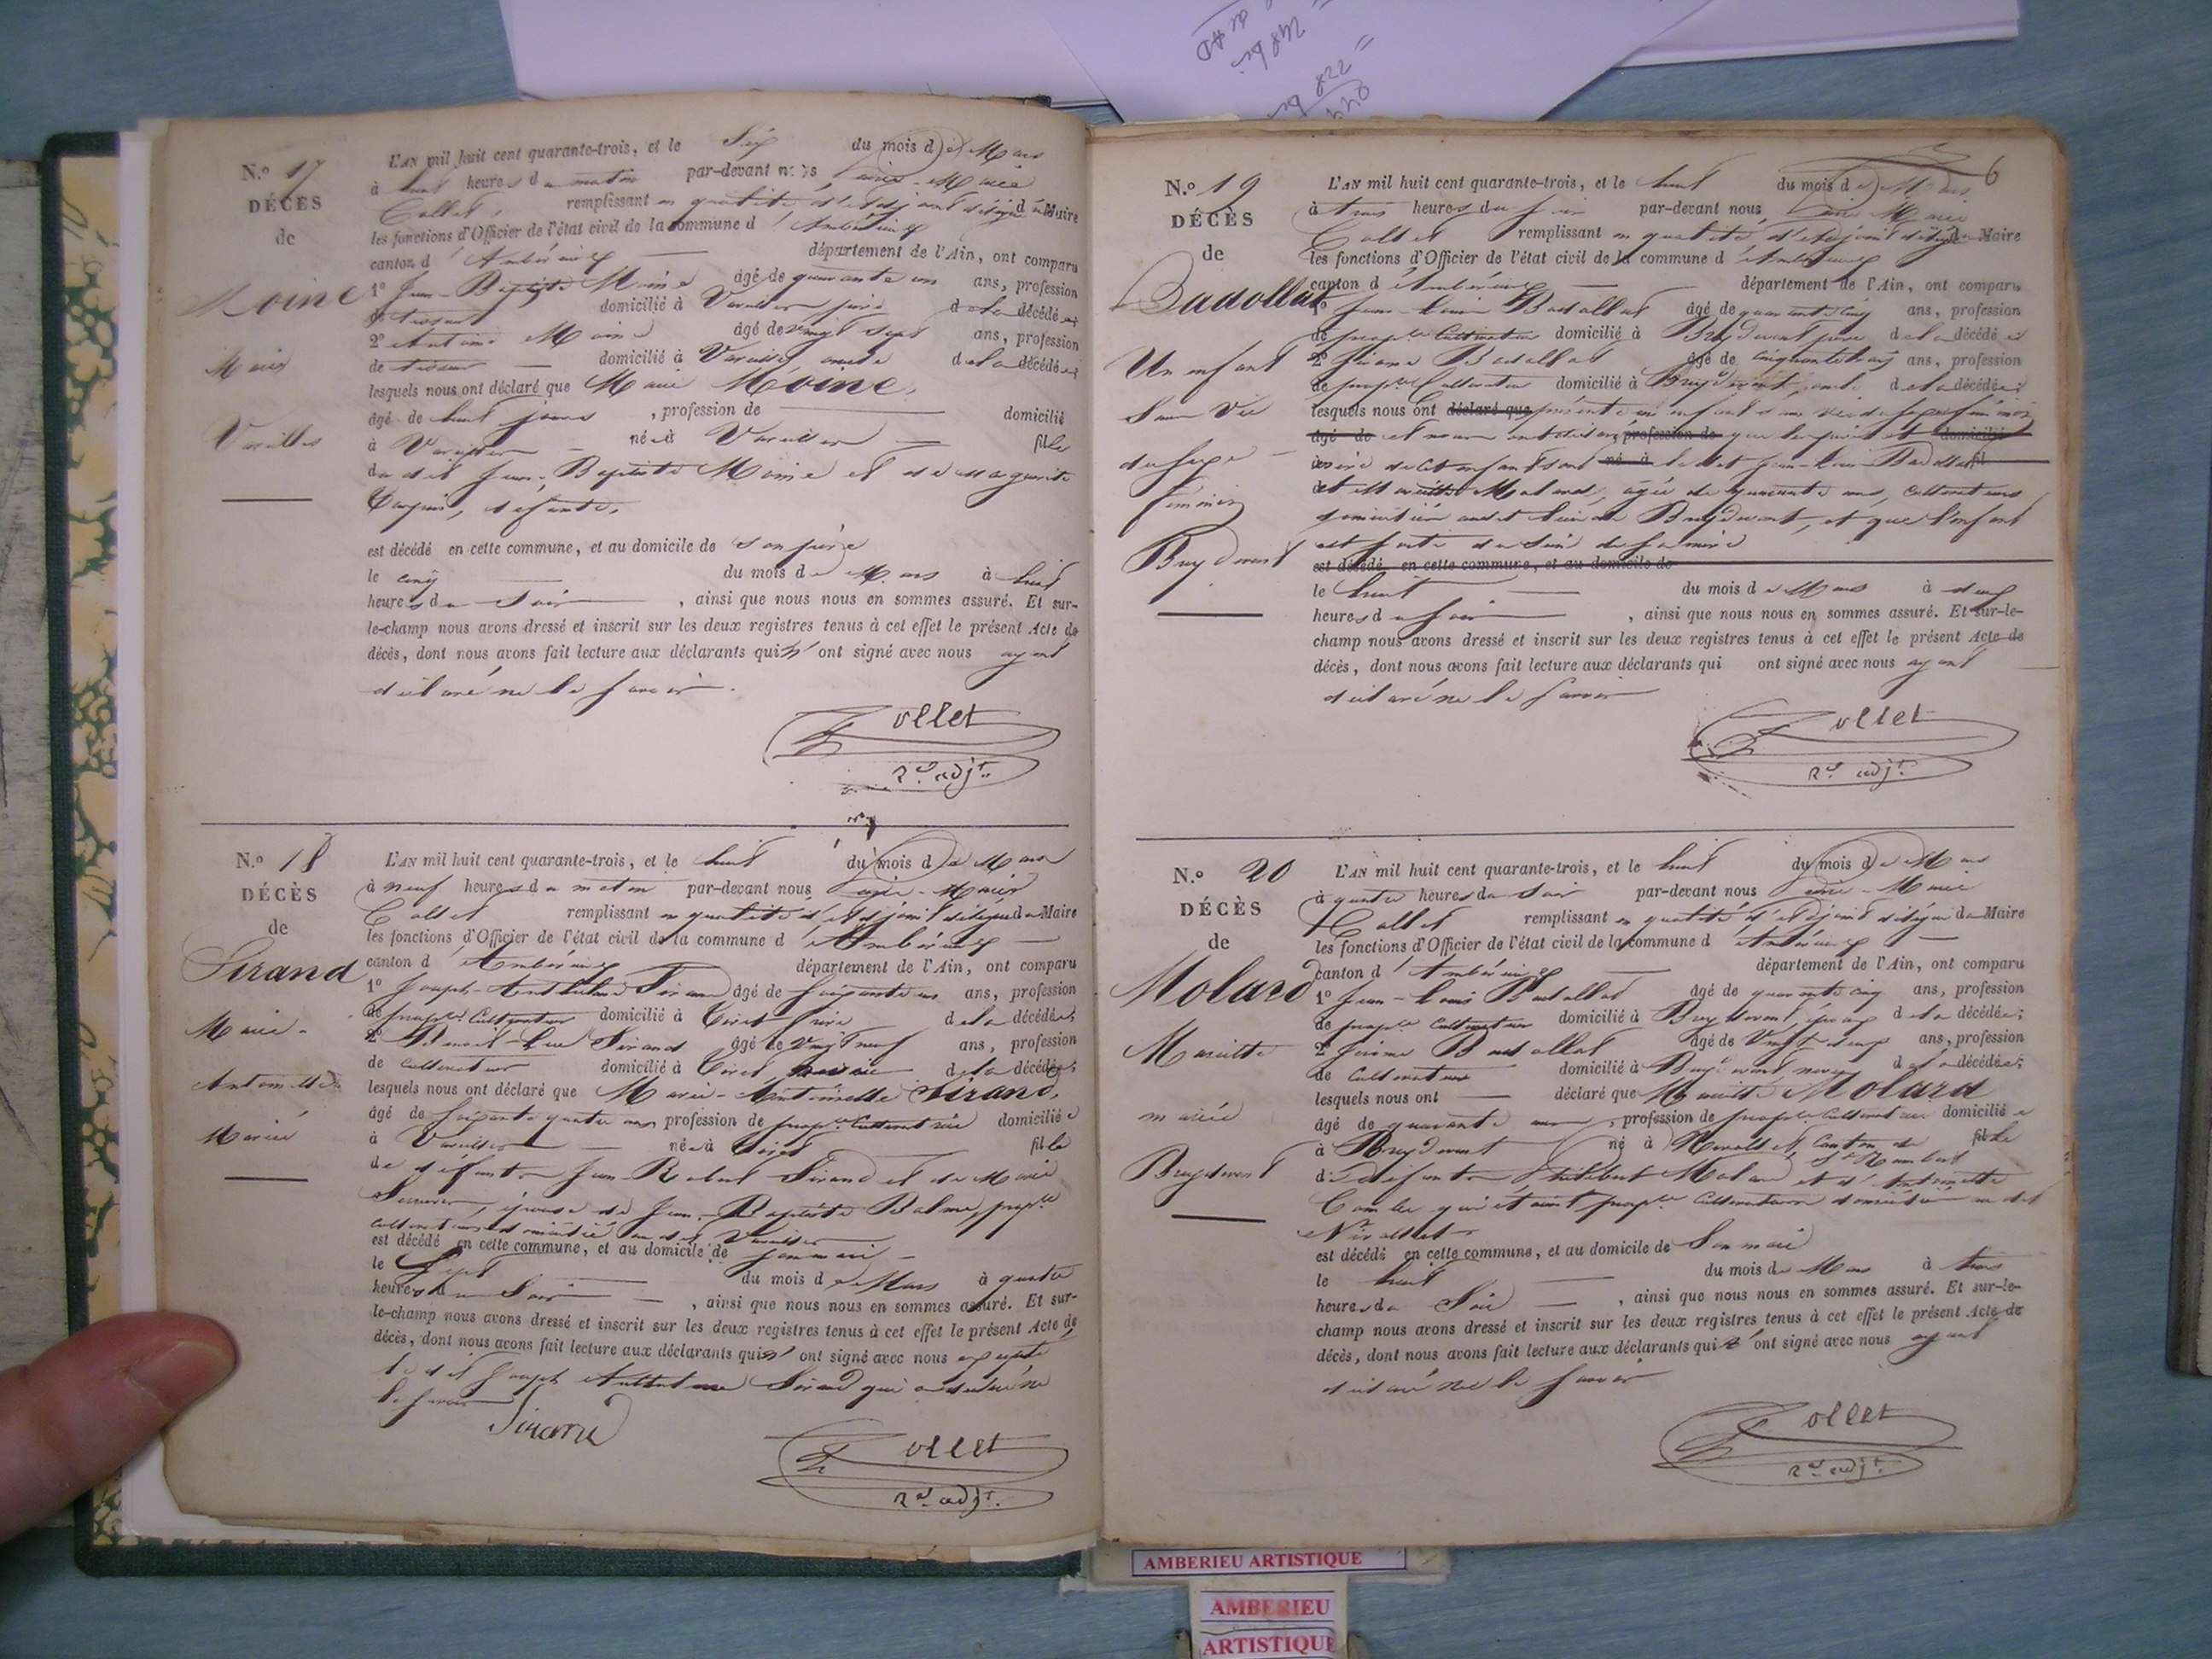 N.º 17
DÉCÈS
de
Moine
Marie
Vareilles
L'AN mil huit cent quarante-trois, et le Six du mois de Mars
à huit heures du matin par-devant nous, Marie
Collet, remplissant en qualité d'adjoint délégué du Maire
les fonctions d'Officier de l'état civil de la commune d'Ambérieux
canton d'Ambérieux département de l'Ain, ont comparu
1º Jean-Baptiste Moine âgé de quarante un ans, profession
de tisseur domicilié à Vareilles père de la décédée;
2º Antoine Moine âgé de vingt sept ans, profession
de tisseur domicilié à Vareilles oncle de la décédée;
lesquels nous ont déclaré que Marie Moine,
âgé de huit jours, profession de domicilié
à Vareilles née à Vareilles fille
du dit Jean-Baptiste Moine et de Marguerite
défunte,
est décédé en cette commune, et au domicile de son père
le cinq du mois de Mars à huit
heures du Soir, ainsi que nous nous en sommes assuré. Et sur-
le-champ nous avons dressé et inscrit sur les deux registres tenus à cet effet le présent Acte de
décès, dont nous avons fait lecture aux déclarants qui n'ont signé avec nous ayant
déclaré ne le savoir.
Collet
2d adjt.
N.º 18
DÉCÈS
de
Sirand
Marie-
Antoinette
Mariée
L'AN mil huit cent quarante-trois, et le huit du mois de Mars
à neuf heures du matin par-devant nous Marie
Collet remplissant en qualité d'adjoint délégué du Maire
les fonctions d'Officier de l'état civil de la commune d'Ambérieux
canton d'Ambérieux département de l'Ain, ont comparu
1º Joseph-Anthelme Sirand âgé de soixante un ans, profession
de propre Cultivateur domicilié à Tiret frère de la décédée;
2º Sirand âgé de vingt neuf ans, profession
de cultivateur domicilié à Tiret de la décédée;
lesquels nous ont déclaré que Marie-Antoinette Sirand,
âgé de soixante quatre ans, profession de propre Cultivatrice domiciliée
à Vareilles née à Tiret fille
de défunts Jean Robert Sirand et de Marie
épouse de Jean-Baptiste Balme, propre
cultivateur domicilié au dit Vareilles
est décédé en cette commune, et au domicile de son mari
le Sept du mois de Mars à quatre
heures du Soir, ainsi que nous nous en sommes assuré. Et sur-
le-champ nous avons dressé et inscrit sur les deux registres tenus à cet effet le présent Acte de
décès, dont nous avons fait lecture aux déclarants qui n'ont signé avec nous excepté
le dit Joseph Anthelme Sirand qui a déclaré ne
le savoir
Sirand
Collet
2d adjt.
6
N.º 19
DÉCÈS
de
Badollat
Un enfant
Sans Vie
du sexe
féminin
Breydevent
L'AN mil huit cent quarante-trois, et le huit du mois de Mars
à trois heures du soir par-devant nous, Marie
Collet remplissant en qualité d'adjoint délégué du Maire
les fonctions d'Officier de l'état civil de la commune d'Ambérieux
canton d'Ambérieux département de l'Ain, ont comparu
1º Jean-Louis Badollat âgé de quarante cinq ans, profession
de propre Cultivateur domicilié à Breydevent père de la décédée
2º Jérôme Badollat âgé de cinquante cinq ans, profession
de propre Cultivateur domicilié à Breydevent, oncle de la décédée;
lesquels nous ont déclaré que présenté un enfant sans vie du sexe féminin
âgé de et nous ont déclaré profession de que le père et domicilié
mère de cet enfant sont né à le dit Jean-Louis Badollat fil
et Mariette Molard, âgée de quarante ans, cultivateurs
domiciliés audit lieu de Breydevent, et que l'enfant
est sorti du sein de sa mère
est décédé en cette commune, et au domicile de
le huit du mois de Mars à deux
heures du soir, ainsi que nous nous en sommes assuré. Et sur-le-
champ nous avons dressé et inscrit sur les deux registres tenus à cet effet le présent Acte de
décès, dont nous avons fait lecture aux déclarants qui ont signé avec nous ayant
déclaré ne le savoir
Collet
2d adjt.
N.º 20
DÉCÈS
de
Molard
Mariette
mariée
Breydevent
L'AN mil huit cent quarante-trois, et le huit du mois de Mars
à quatre heures du Soir par-devant nous Marie
Collet remplissant en qualité d'adjoint délégué du Maire
les fonctions d'Officier de l'état civil de la commune d'Ambérieux
canton d'Ambérieux département de l'Ain, ont comparu
1º Jean-Louis Badollat âgé de quarante cinq ans, profession
de propre Cultivateur domicilié à Breydevent, époux de la décédée;
2º Jérôme Badollat âgé de Vingt deux ans, profession
de Cultivateur domicilié à Breydevent neveu de la décédée;
lesquels nous ont déclaré que Mariette Molard
âgé de quarante ans, profession de propre Cultivatrice domiciliée
à Breydevent né à Nivollet, Canton de St Rambert fille
de défunts Philibert Molard et d'Antoinette
qui étaient propre Cultivateurs domiciliés au dit
Nivollet
est décédé en cette commune, et au domicile de Son mari
le huit du mois de Mars à trois
heures du Soir, ainsi que nous nous en sommes assuré. Et sur-le-
champ nous avons dressé et inscrit sur les deux registres tenus à cet effet le présent Acte de
décès, dont nous avons fait lecture aux déclarants qui n'ont signé avec nous ayant
déclaré ne le savoir
Collet
2d adjt.
AMBERIEU ARTISTIQUE
AMBERIEU
ARTISTIQUE